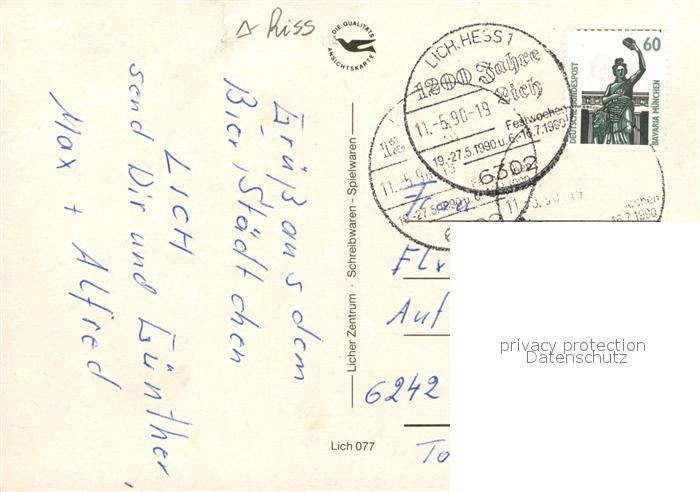 △ Riss
DIE QUALITÄTS
ANSICHTSKARTE
Grüß aus dem
Bier Städtchen
LICH
send Dir und Günther,
Max + Alfred
Licher Zentrum · Schreibwaren - Spielwaren
Lich 077
LICH, HESS 1
1200 Jahre
Lich
11.-6.90-19
Festwochen
19.-27.5.1990 u. 6.-16.7.1990
6302
60
DEUTSCHE BUNDESPOST
BAVARIA MÜNCHEN
Frau
6242
privacy protection
Datenschutz